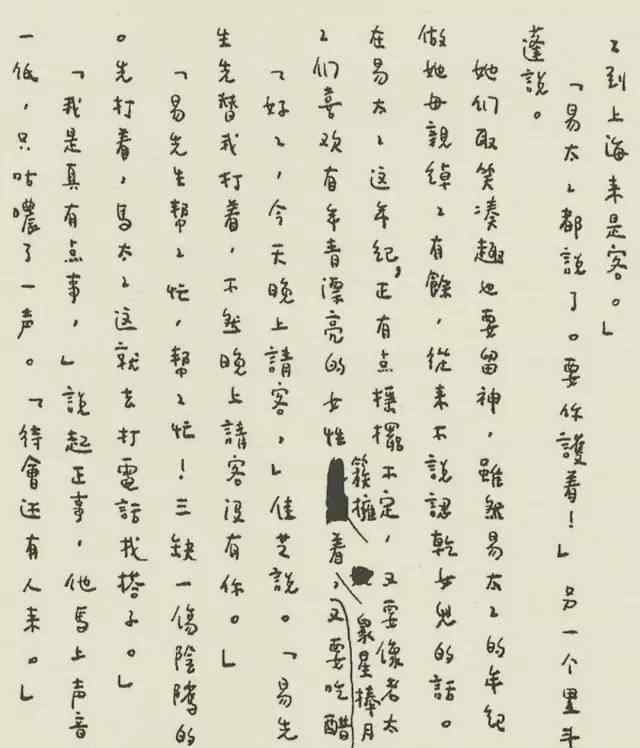 〻到上海来是客。」
「易太〻都說了。要你護着！」另一个黑斗
蓬說。
她们取笑凑趣也要留神，雖然易太〻的年纪
做她母親綽〻有餘，從来不說認乾女兒的話。
在易太〻这年纪，正有点摇擺不定，又要像老太
〻们喜欢有年青漂亮的女性簇擁着，眾星捧月，又要吃醋
「好〻，今天晚上請客，」佳芝說。「易先
生先替我打着，不然晚上請客没有你。」
「易先生幫〻忙，幫〻忙！三缺一傷陰騭的
。先打着，馬太〻这就去打電話找搭子。」
「我是真有点事，」說起正事，他馬上声音
一低，只咕噥了一声。「待會还有人来。」